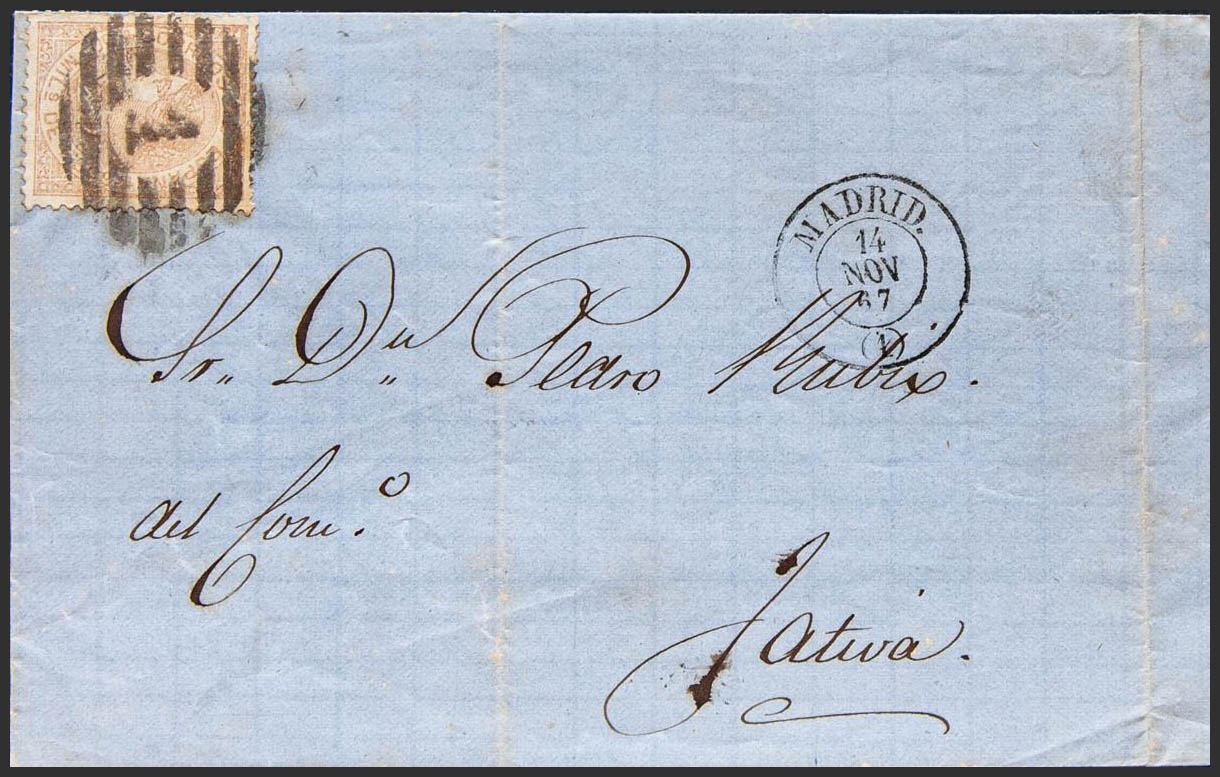 MILS DE
MADRID.
14
NOV
67
(1)
Sr. Dn. Pedro Rubix.
del Como.
Jativa.